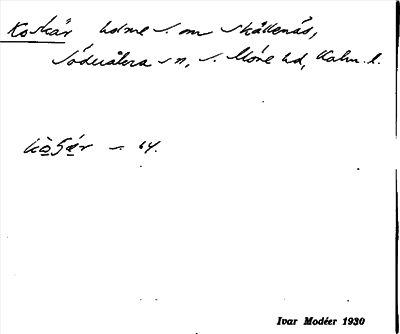 Koskär holme s. om Skällenäs,
Söderåkra sn, s. Möre hd, Kalm. l.
– 64.
Ivar Modéer 1930